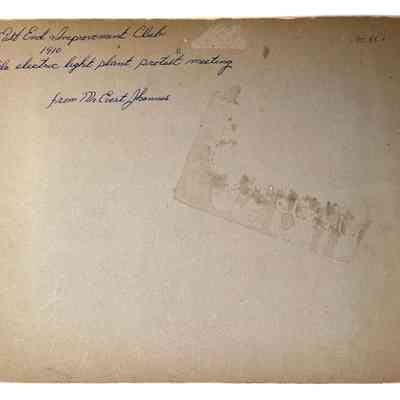 End Improvement Club
1910
electric light plant protest meeting
from Mr Evert